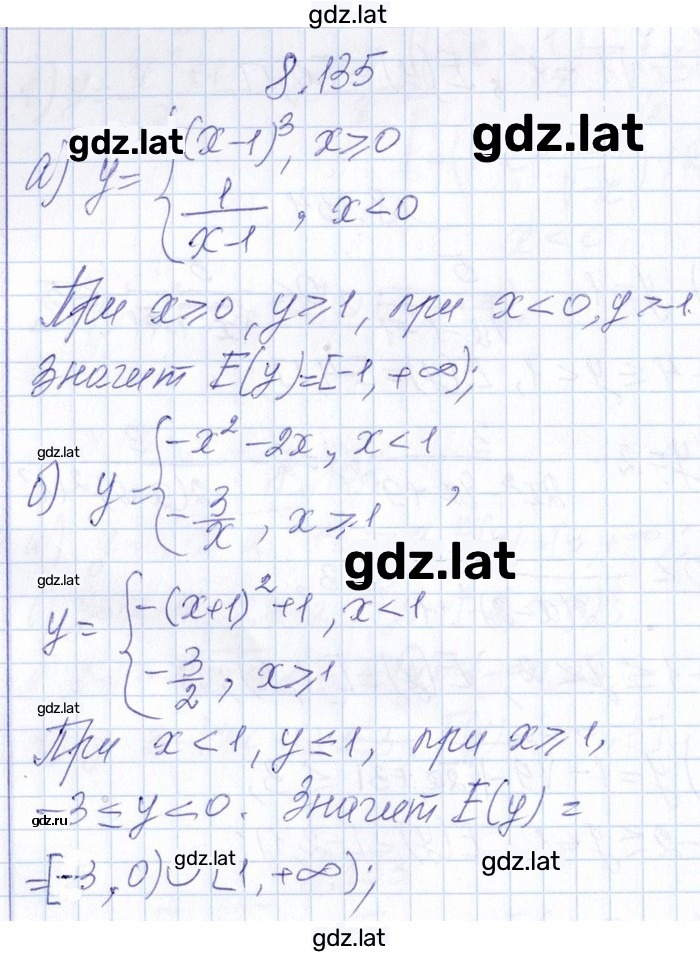 gdz.lat
8.135
gdz.lat
gdz.lat
а) y = { (x-1)³, x≥0
1/(x-1), x<0
При x≥0, y≥1, при x<0, y>-1.
Значит E(y)=[-1, +∞);
gdz.lat
б) y = { -x² - 2x, x<1
-3/x, x≥1 ,
gdz.lat
gdz.lat
y = { -(x+1)² + 1, x<1
-3/2, x≥1
gdz.lat
При x<1, y≤1, при x≥1,
gdz.ru
-3≤y<0. Значит E(y) =
gdz.lat
gdz.lat
=[-3, 0)∪ 1, +∞);
gdz.lat